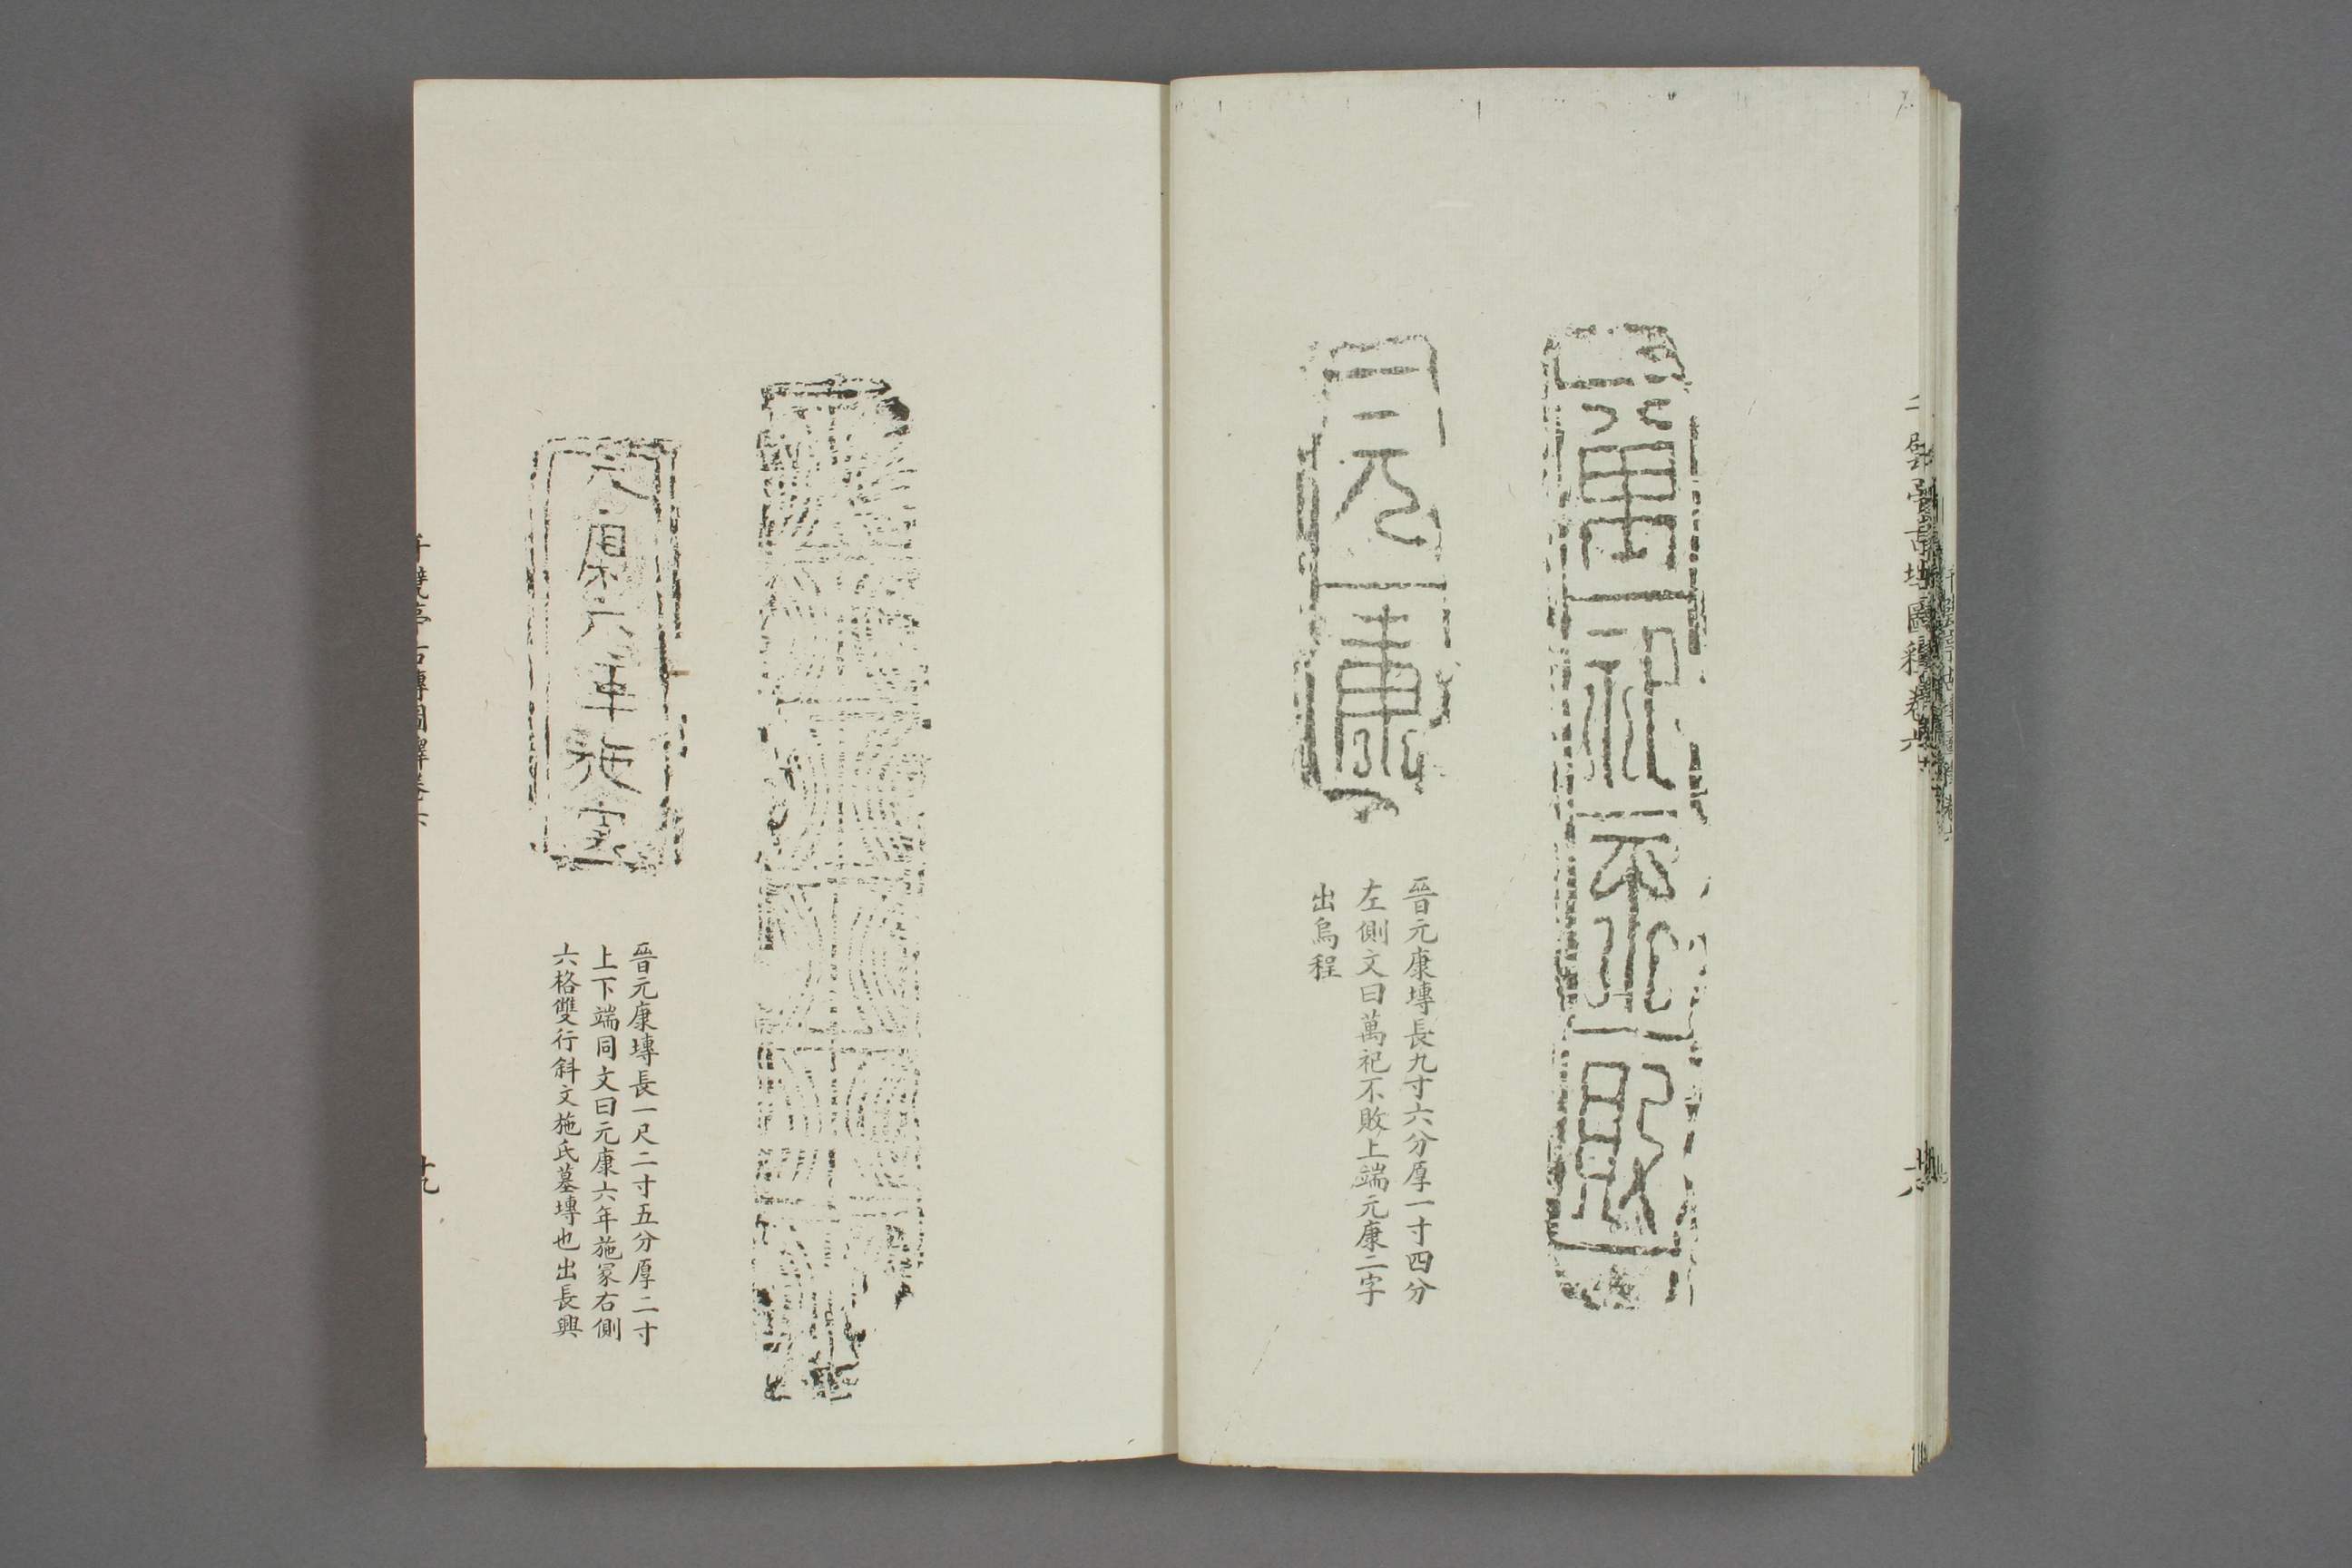 萬祀不敗
元康
晉元康塼長九寸六分厚一寸四分
左側文曰萬祀不敗上端元康二字
出烏程
元康六年施冢
晉元康塼長一尺二寸五分厚二寸
上下端同文曰元康六年施冢右側
六格雙行斜文施氏墓塼也出長興